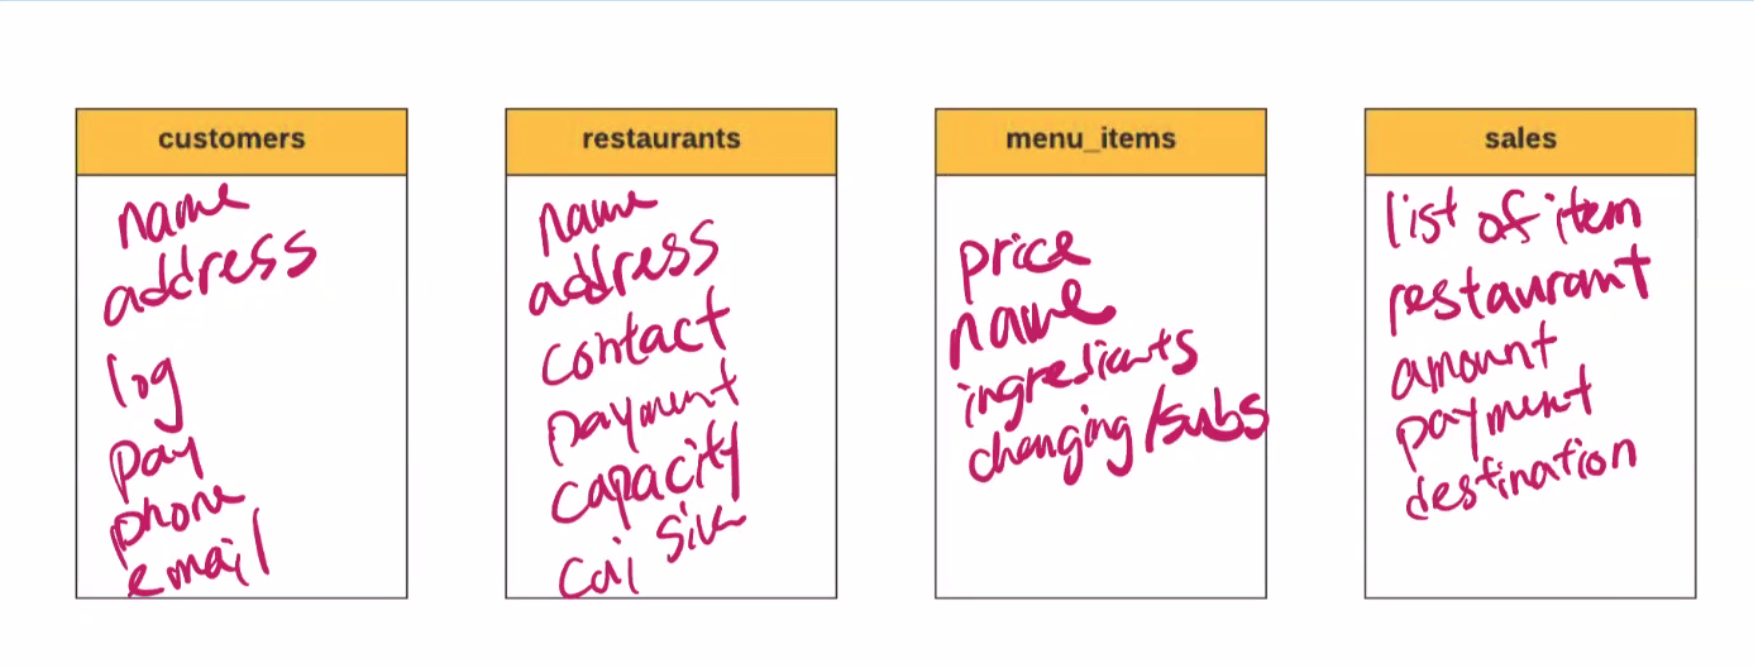 customers
name
address
log
pay
phone
email
restaurants
name
address
contact
payment
capacity
menu_items
price
name
ingredients
changing/subs
sales
list of item
restaurant
amount
payment
destination